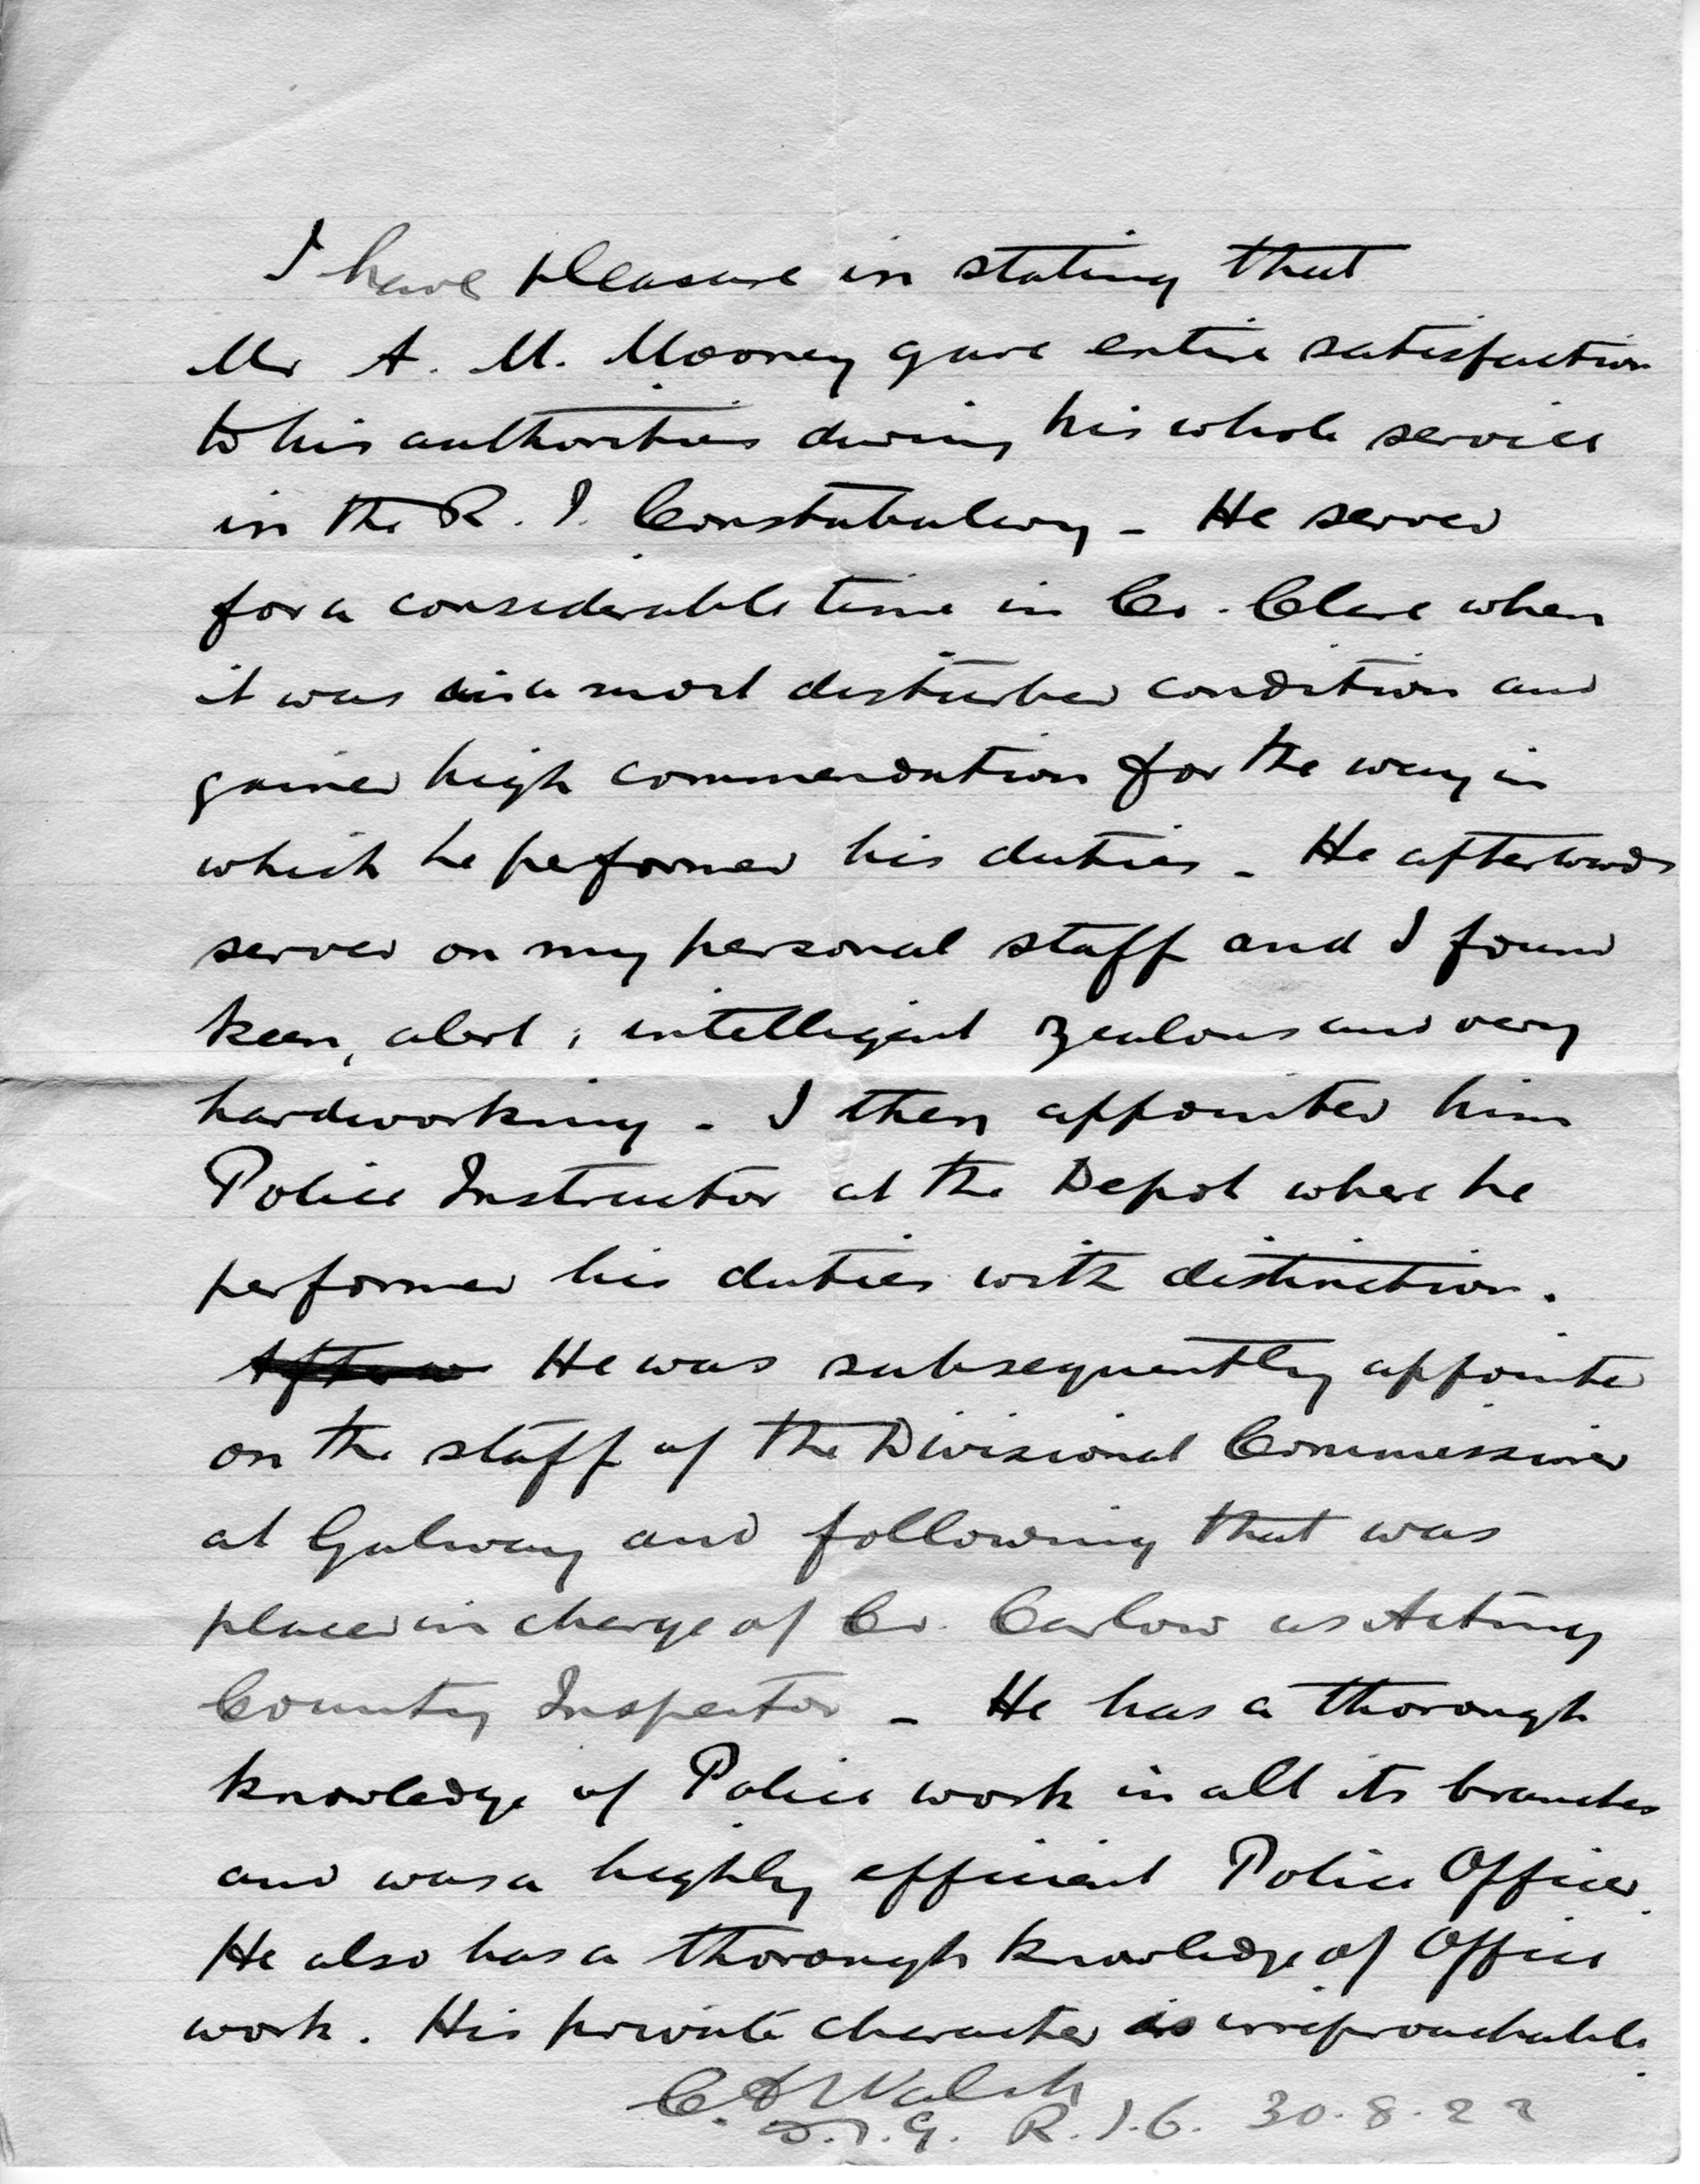 I have pleasure in stating that
Mr A. M. Mooney gave entire satisfaction
to his authorities during his whole service
in the R. I. Constabulary - He served
for a considerable time in Co. Clare when
it was in a most disturbed condition and
gained high commendation for the way in
which he performed his duties - He afterwards
served on my personal staff and I found
keen, alert, intelligent zealous and very
hardworking - I then appointed him
Police Instructor at the Depot where he
performed his duties with distinction.
He was subsequently appointed
on the staff of the Divisional Commissioner
at Galway and following that was
placed in charge of Co. Carlow as Acting
County Inspector - He has a thorough
knowledge of Police work in all its branches
and was a highly efficient Police Officer.
He also has a thorough knowledge of Office
work. His private character is irreproachable.
C. A Walsh
D.I.G. R.I.C. 30.8.22